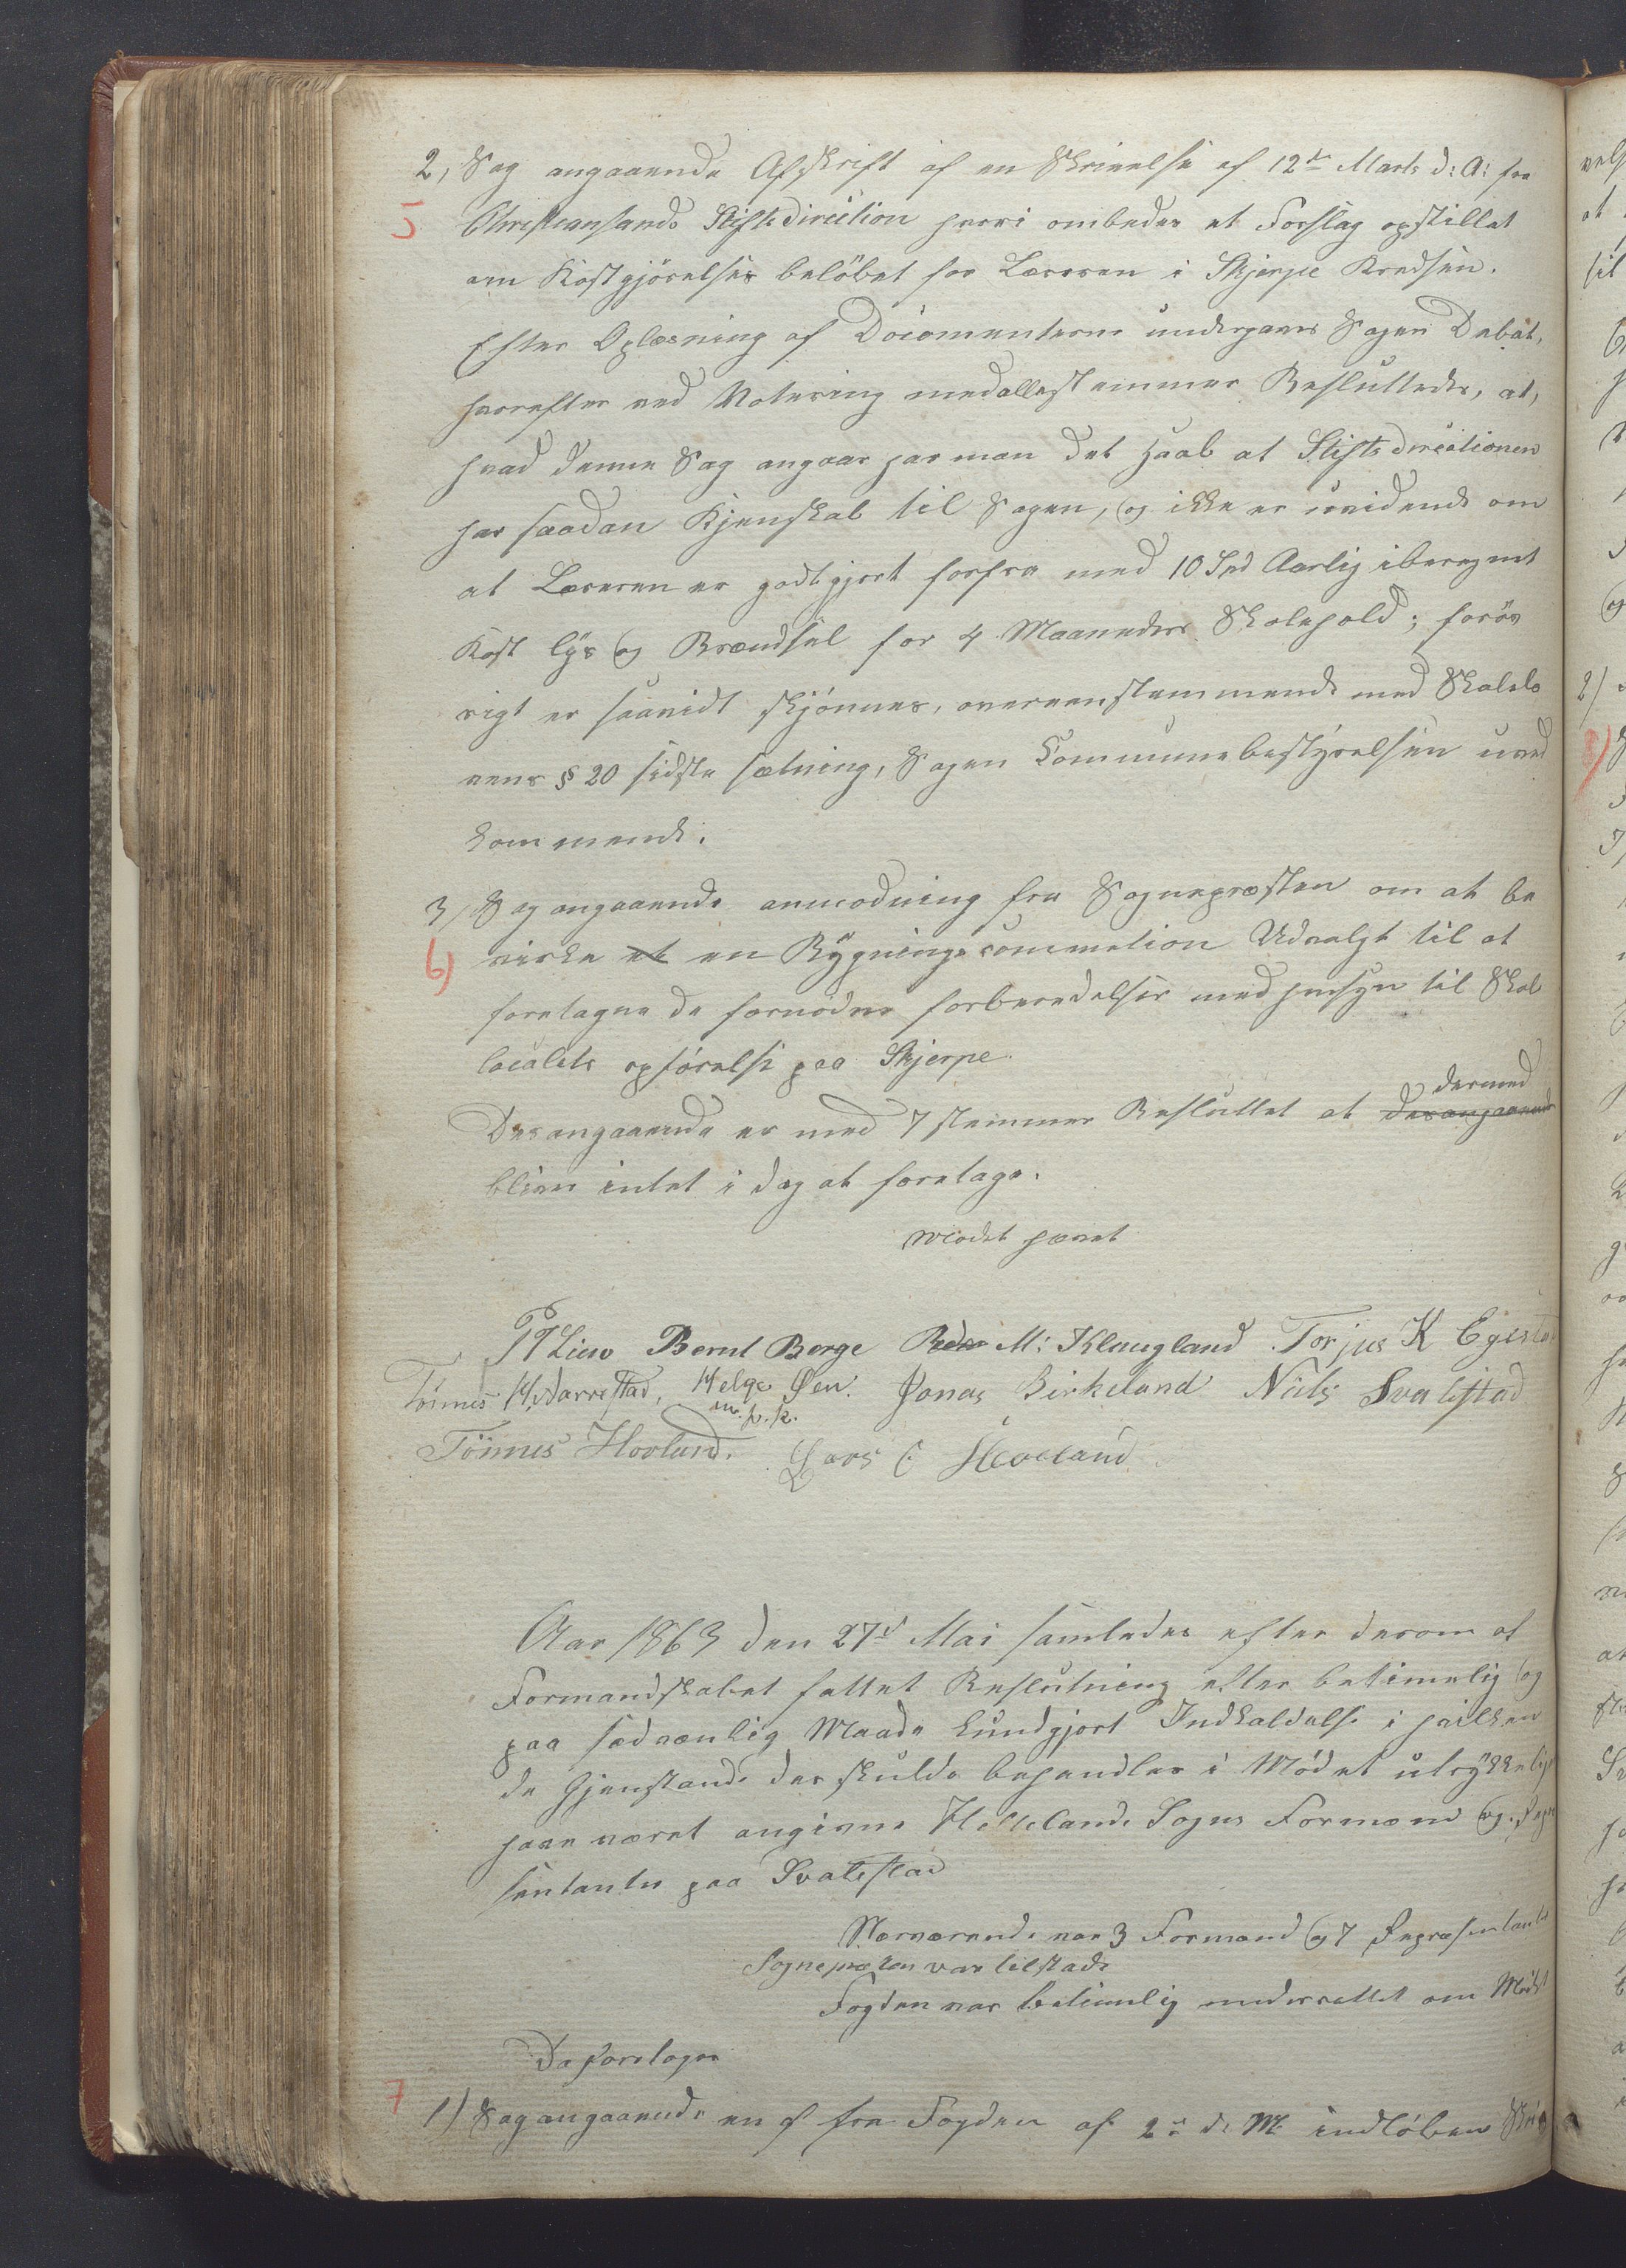 2, Sag angaaende Afskrift af en Skrivelse af 12te Marts d: A: fra
5 Christiansands Stiftsdirection hvori ombedes et Forslag opstillet
om Kostgjörelses belöbet for Læreren i Skjerpe Kredsen.
Efter Oplæsning af Documenterne undergaves Sagen Debat,
hvorefter ved Votering medallestemmer Besluttedes, at,
hvad denne Sag angaar har man det Haab at Stiftsdirectionen
har saadan Kjenskab til Sagen, og ikke er uvidende om
at Læreren er godtgjort forfra med 10 Spd Aarlig iberegnet
Kost lys og Brændsel for 4 Maaneders Skolehold; foröv
rigt er saavidt skjönnes, overeenstemmende med Skolelo
vens § 20 sidste sætning, Sagen Communebestyrelsen uved
kommende.
3, Sag angaaende anmodning fra Sognepræsten om at be
6) virke et en Bygningscommetion Udvalgt til at
foretagne de fornödne forberedelser med hensyn til Skol
localets opförelse paa Skjerpe.
dermed
Desangaaende er med 7 stemmer Besluttet at desangaaende
bliver intet i dag at foretage.
Mödet hævet
Bernt Berge Peder M: Klaugland Torjus K Egesta
Tönnes H, Aarrestad, Helge Öen. Jonas Birkeland Niels Svalestad
m. p. P.
Tönnes Hovland. Lars C Hovland
Aar 1863 den 27d Mai samledes efter derom af
Formandskabet fattet Beslutning efter betimelig og
paa sædvanlig Maade kundgjort Indkaldelse i hvilken
de Gjenstande der skulde behandles i Mödet utrykkelig
have været angivne Hellelands Sogns Formænd og Repre
sentanter paa Svalestad
Nærværende var 3 Formænd og 7 Repræsentanter
Sognepræsten var tilstæde
Fogden var betimelig underrettet om Mödet
Da foretoges
7 1) Sag angaaende en af fra Fogden af 2d d. M. indlöben Skri